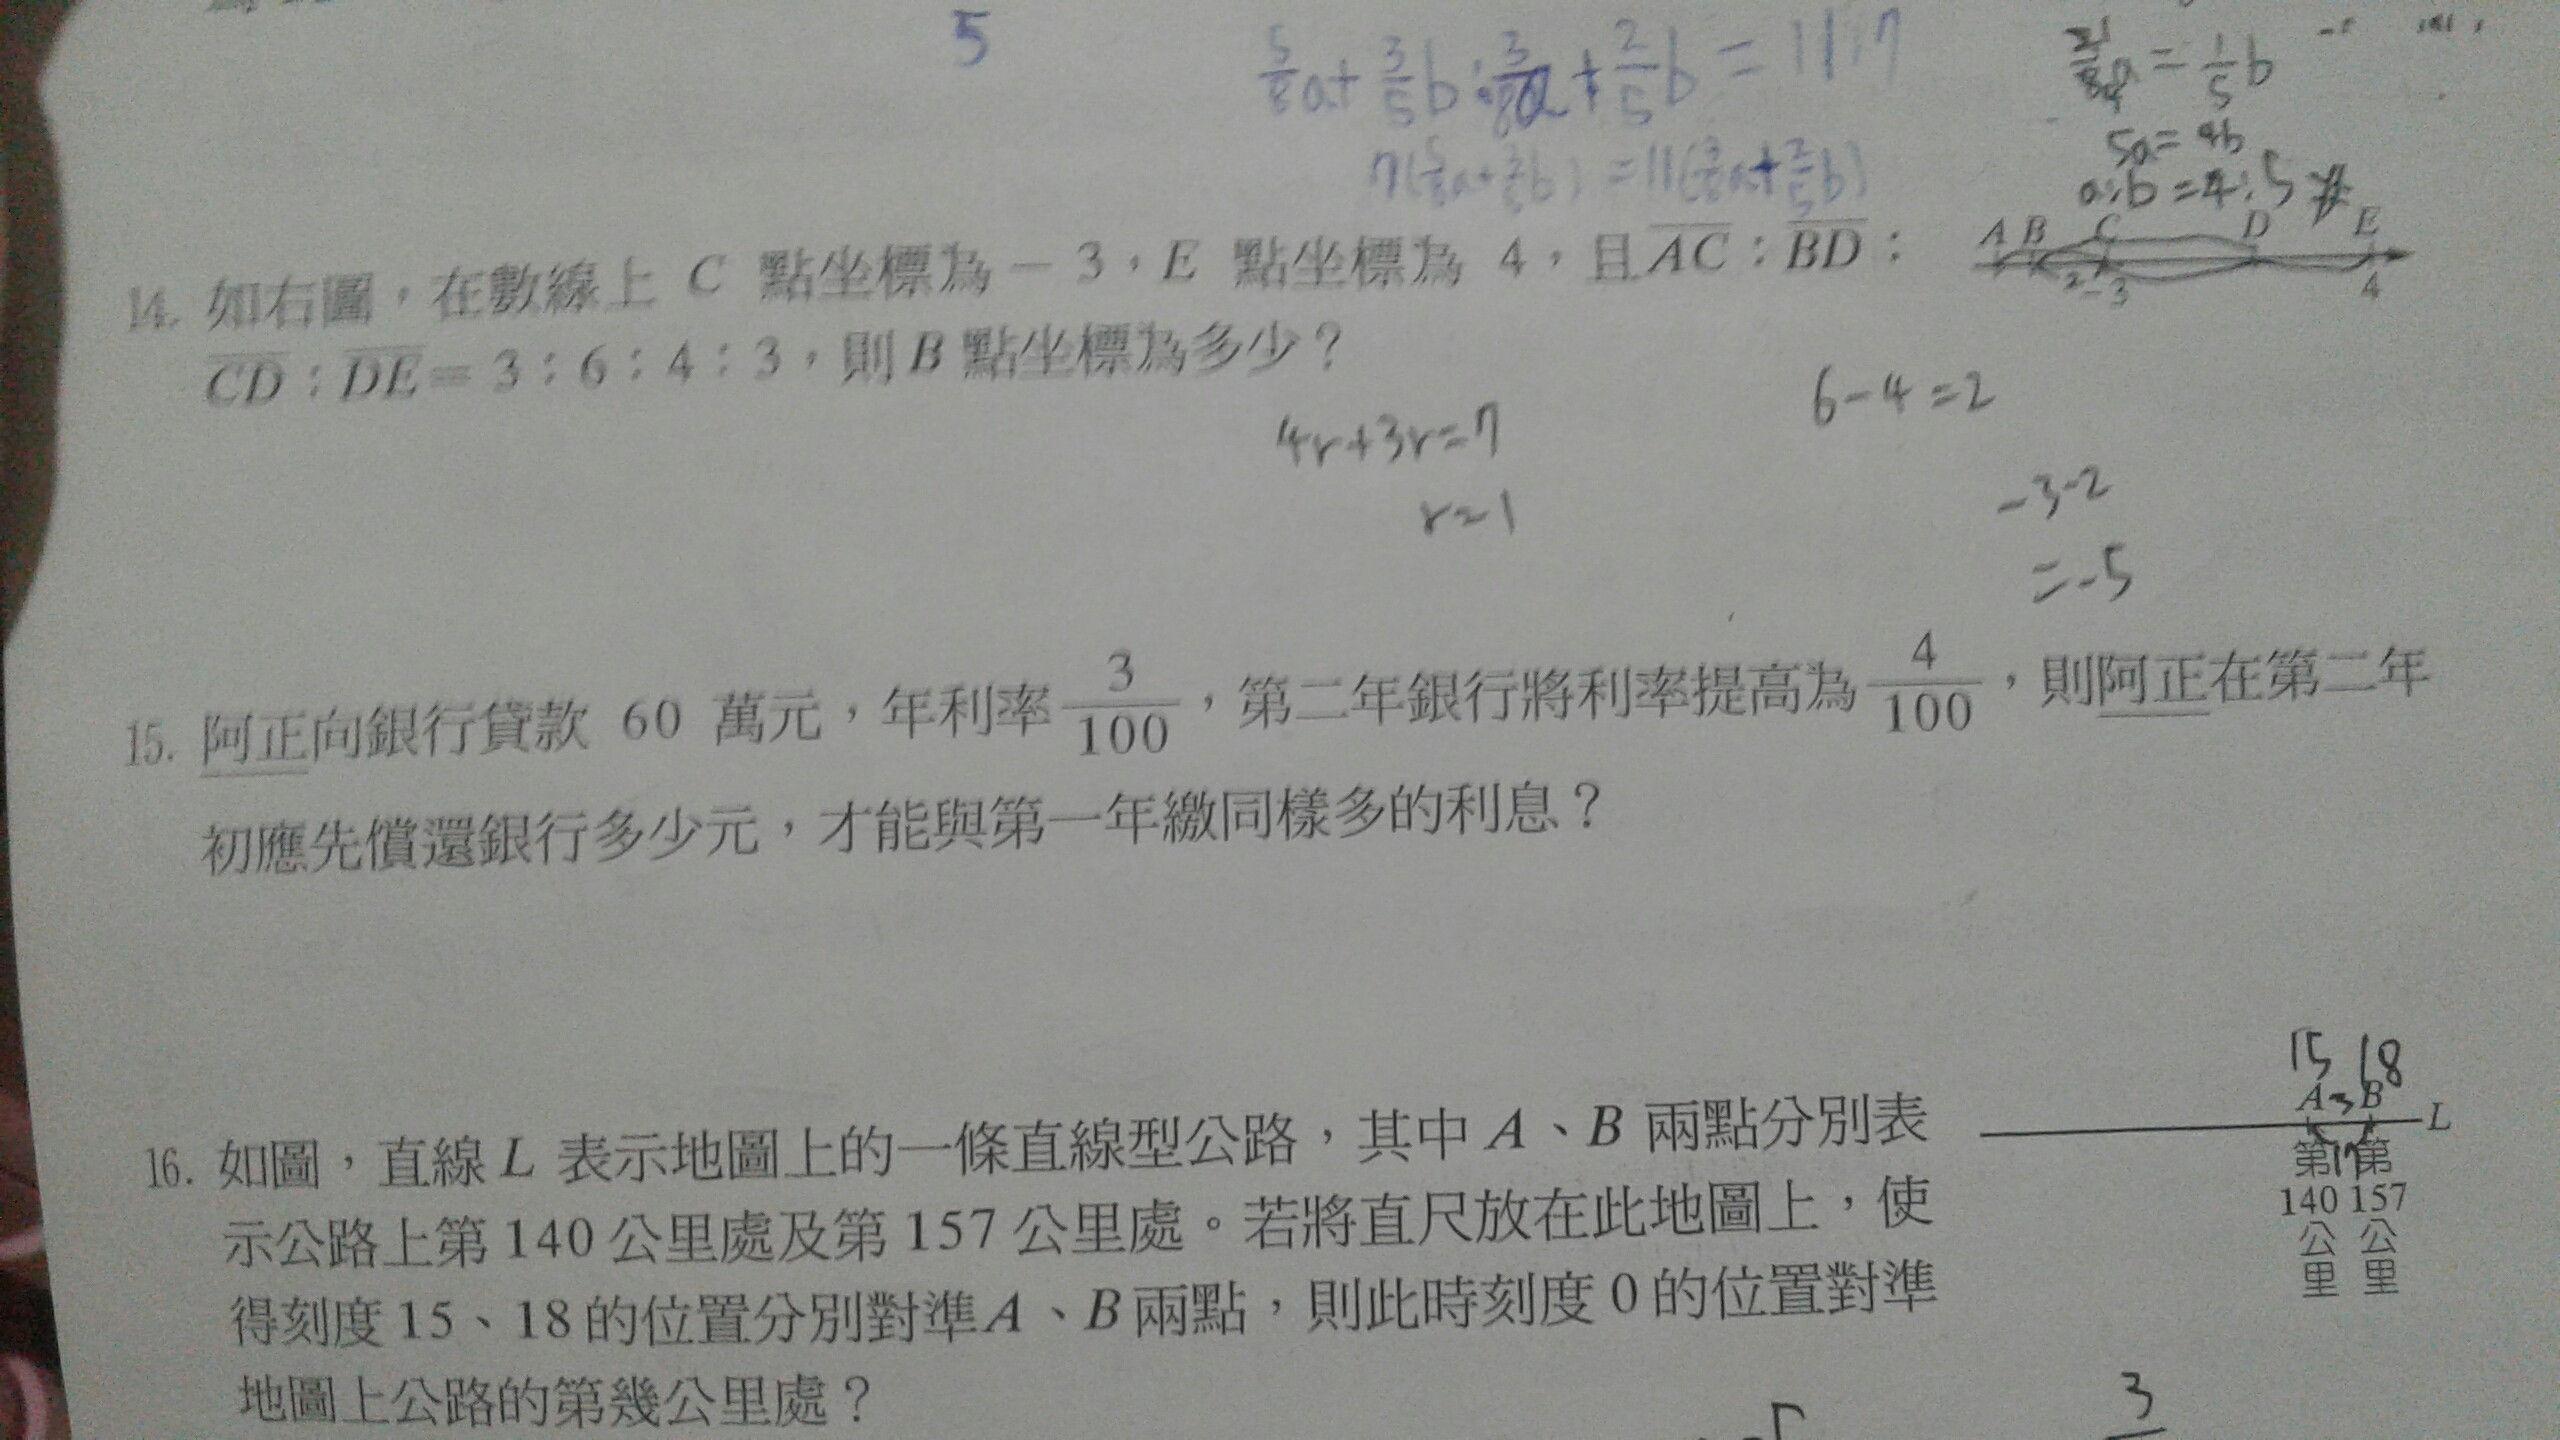 5
5/8a + 3/5b : 3/8a + 2/5b = 11:7
= 1/5b
7(5/8a+3/5b) = 11(3/8a+2/5b)
5a=4b
a:b=4:5
14. 如右圖，在數線上 C 點坐標為－3，E 點坐標為 4，且AC：BD：
A B C D E
2 -3 4
CD：DE＝3：6：4：3，則B點坐標為多少？
6-4=2
4r+3r=7
r=1
-3-2
=-5
15. 阿正向銀行貸款 60 萬元，年利率3/100，第二年銀行將利率提高為4/100，則阿正在第二年
初應先償還銀行多少元，才能與第一年繳同樣多的利息？
15 18
A 3 B
L
第 17 第
140 157
公 公
里 里
16. 如圖，直線L 表示地圖上的一條直線型公路，其中A、B 兩點分別表
示公路上第140公里處及第157公里處。若將直尺放在此地圖上，使
得刻度15、18的位置分別對準A、B兩點，則此時刻度0的位置對準
地圖上公路的第幾公里處？
3